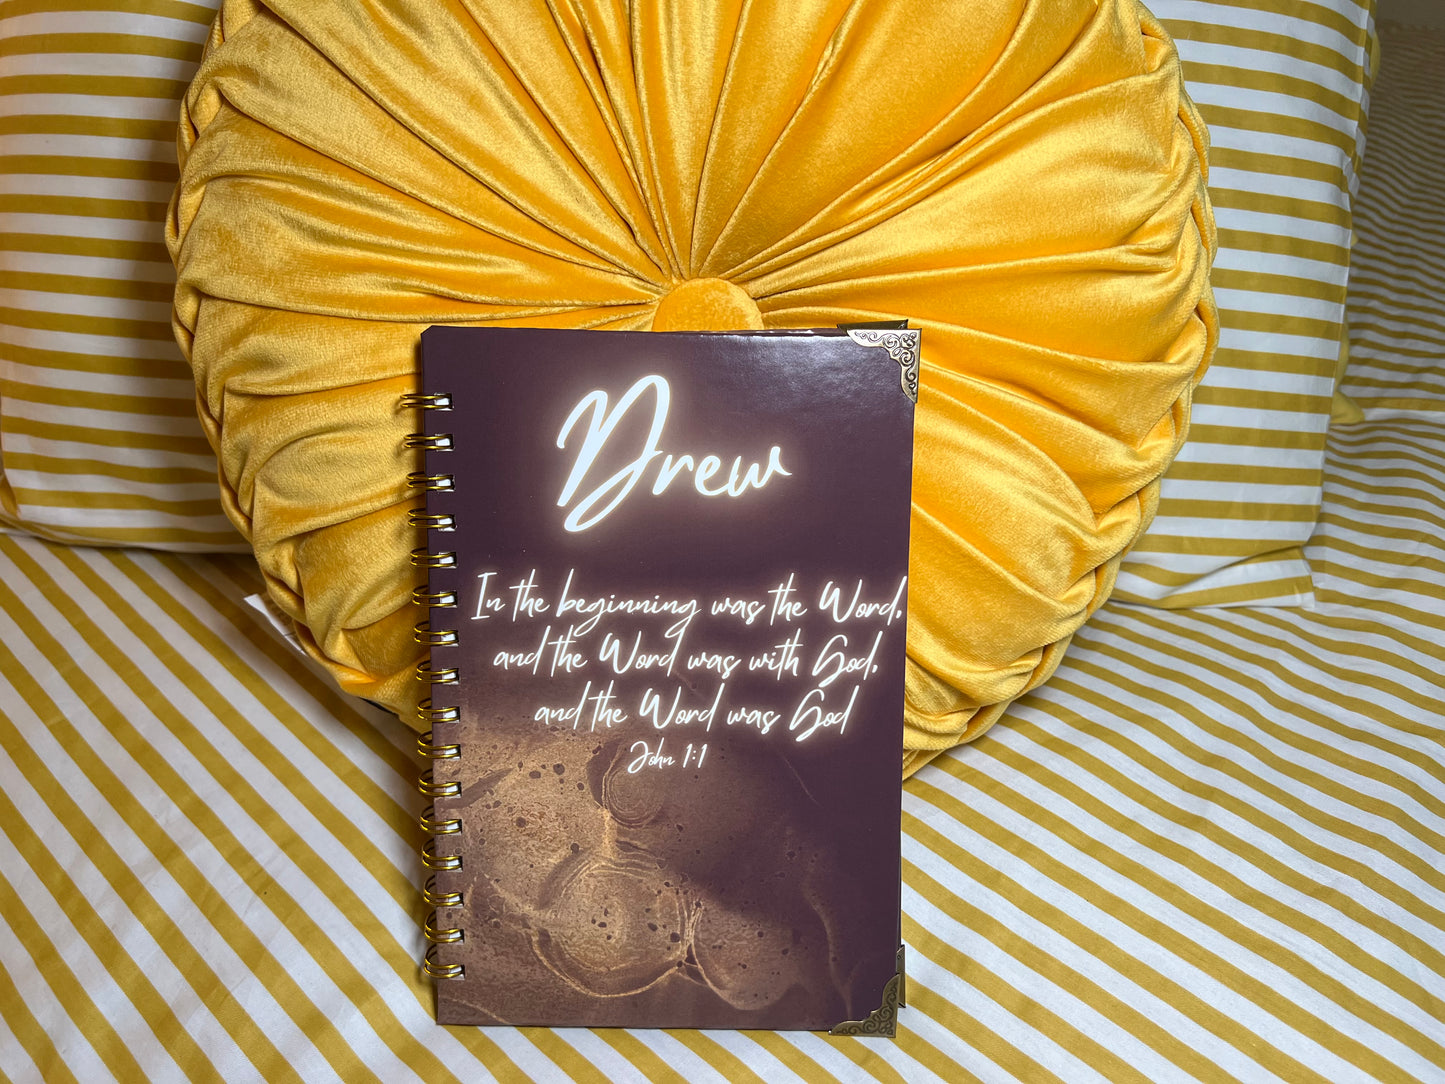 Drew
In the beginning was the Word,
and the Word was with God,
and the Word was God
John 1:1